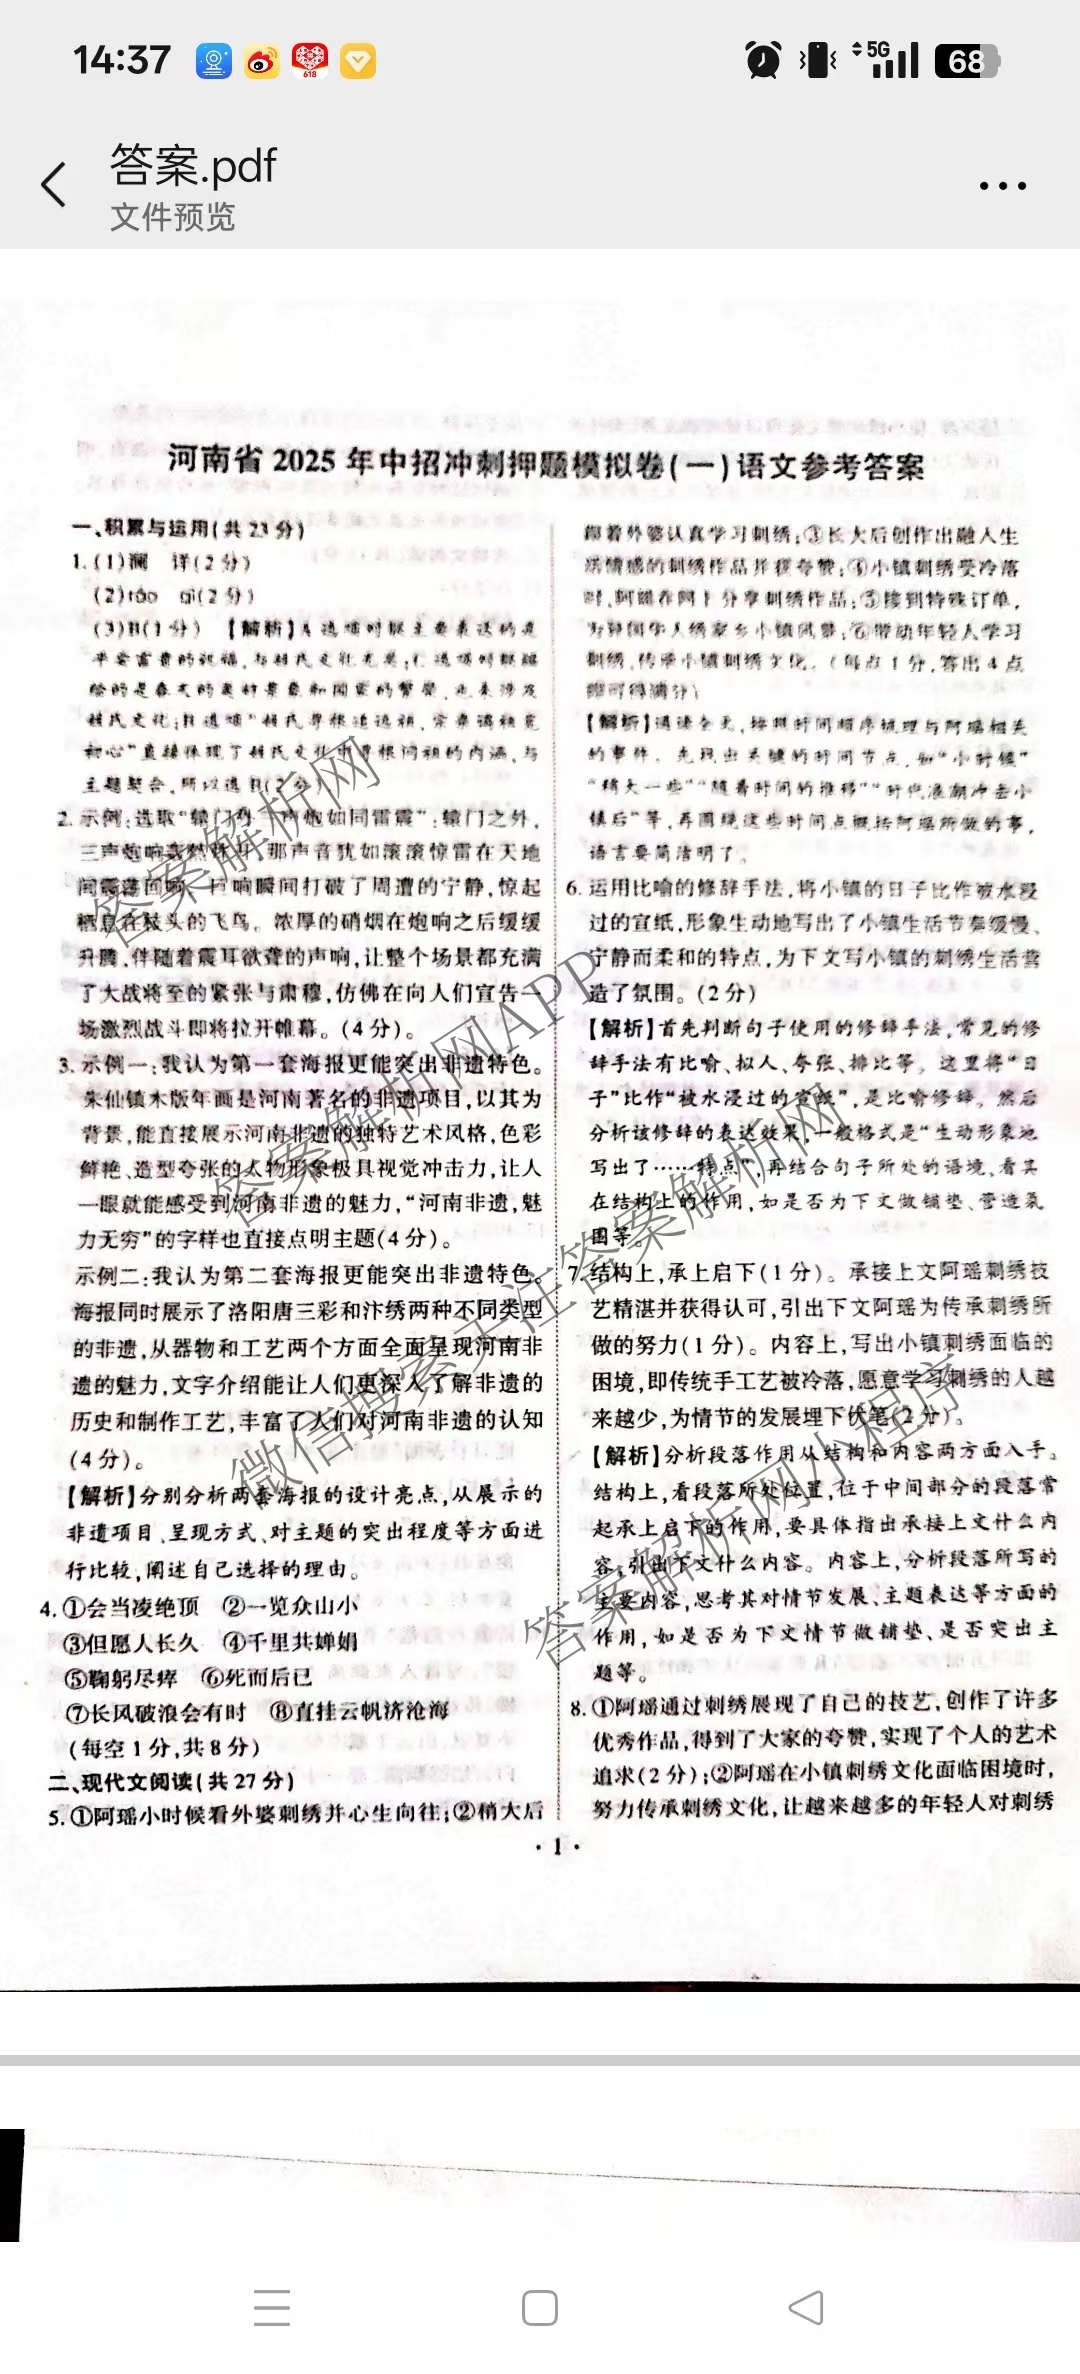 14:37
618
5G
68
答案.pdf
文件预览
河南省 2025 年中招冲刺押题模拟卷(一)语文参考答案
一、积累与运用(共 23 分)
1. (1)澜 详(2 分)
(2)táo qì(2 分)
(3)B(1 分) 【解析】A 选项对联主要表达的是
平安富贵的祝福,与姓氏文化无关;C 选项对联描
绘的是春天的美好景象和国家的繁荣,也未涉及
姓氏文化;B 选项“姓氏寻根追远祖,宗亲谒祖见
初心”直接体现了姓氏文化中寻根问祖的内涵,与
主题契合,所以选 B(2 分)
2. 示例:选取“辕门外三声炮如同雷震”:辕门之外,
三声炮响轰然炸开,那声音犹如滚滚惊雷在天地
间震荡回响,巨响瞬间打破了周遭的宁静,惊起
栖息在枝头的飞鸟。浓厚的硝烟在炮响之后缓缓
升腾,伴随着震耳欲聋的声响,让整个场景都充满
了大战将至的紧张与肃穆,仿佛在向人们宣告一
场激烈战斗即将拉开帷幕。(4 分)。
3. 示例一:我认为第一套海报更能突出非遗特色。
朱仙镇木版年画是河南著名的非遗项目,以其为
背景,能直接展示河南非遗的独特艺术风格,色彩
鲜艳、造型夸张的人物形象极具视觉冲击力,让人
一眼就能感受到河南非遗的魅力,“河南非遗,魅
力无穷”的字样也直接点明主题(4 分)。
示例二:我认为第二套海报更能突出非遗特色。
海报同时展示了洛阳唐三彩和汴绣两种不同类型
的非遗,从器物和工艺两个方面全面呈现河南非
遗的魅力,文字介绍能让人们更深入了解非遗的
历史和制作工艺,丰富了人们对河南非遗的认知
(4 分)。
【解析】分别分析两套海报的设计亮点,从展示的
非遗项目、呈现方式、对主题的突出程度等方面进
行比较,阐述自己选择的理由。
4. ①会当凌绝顶 ②一览众山小
③但愿人长久 ④千里共婵娟
⑤鞠躬尽瘁 ⑥死而后已
⑦长风破浪会有时 ⑧直挂云帆济沧海
(每空 1 分,共 8 分)
二、现代文阅读(共 27 分)
5. ①阿瑶小时候看外婆刺绣并心生向往;②稍大后
跟着外婆认真学习刺绣;③长大后创作出融入人生
活情感的刺绣作品并获夸赞;④小镇刺绣受冷落
时,阿瑶在网上分享刺绣作品;⑤接到特殊订单,
为异国华人绣家乡小镇风景;⑥带动年轻人学习
刺绣,传承小镇刺绣文化。(每点 1 分,答出 4 点
即可得满分)
【解析】通读全文,按照时间顺序梳理与阿瑶相关
的事件。先找出关键的时间节点,如“小时候”
“稍大一些”“随着时间的推移”“时代浪潮冲击小
镇后”等,再围绕这些时间点概括阿瑶所做的事,
语言要简洁明了。
6. 运用比喻的修辞手法,将小镇的日子比作被水浸
过的宣纸,形象生动地写出了小镇生活节奏缓慢、
宁静而柔和的特点,为下文写小镇的刺绣生活营
造了氛围。(2 分)
【解析】首先判断句子使用的修辞手法,常见的修
辞手法有比喻、拟人、夸张、排比等。这里将“日
子”比作“被水浸过的宣纸”,是比喻修辞。然后
分析该修辞的表达效果,一般格式是“生动形象地
写出了……特点”,再结合句子所处的语境,看其
在结构上的作用,如是否为下文做铺垫、营造氛
围等。
7. 结构上,承上启下(1 分)。承接上文阿瑶刺绣技
艺精湛并获得认可,引出下文阿瑶为传承刺绣所
做的努力(1 分)。内容上,写出小镇刺绣面临的
困境,即传统手工艺被冷落,愿意学习刺绣的人越
来越少,为情节的发展埋下伏笔(2 分)。
【解析】分析段落作用从结构和内容两方面入手。
结构上,看段落所处位置,往于中间部分的段落常
起承上启下的作用,要具体指出承接上文什么内
容,引出下文什么内容。内容上,分析段落所写的
主要内容,思考其对情节发展、主题表达等方面的
作用,如是否为下文情节做铺垫、是否突出主
题等。
8. ①阿瑶通过刺绣展现了自己的技艺,创作了许多
优秀作品,得到了大家的夸赞,实现了个人的艺术
追求(2 分);②阿瑶在小镇刺绣文化面临困境时,
努力传承刺绣文化,让越来越多的年轻人对刺绣
· 1 ·
答案解析网
答案解析网APP
微信搜索关注答案解析网
答案解析网小程序